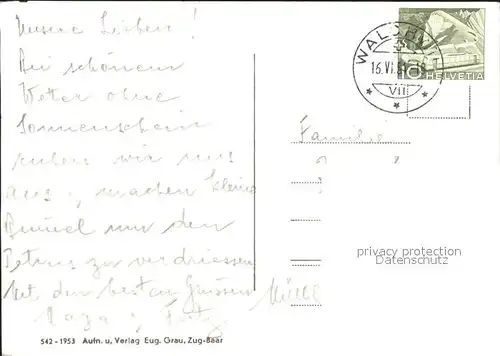 Unsere Lieben!
Bei schönem
Wetter ohne
Sonnenschein
ruhen wir uns
aus, machen kleine
Bummel um den
zu verdriessen
Mit den besten Grüssen
WALCHWIL
16.VI.
VII
10 HELVETIA
Familie
privacy protection
Datenschutz
542-1953 Aufn. u. Verlag Eug. Grau, Zug-Baar